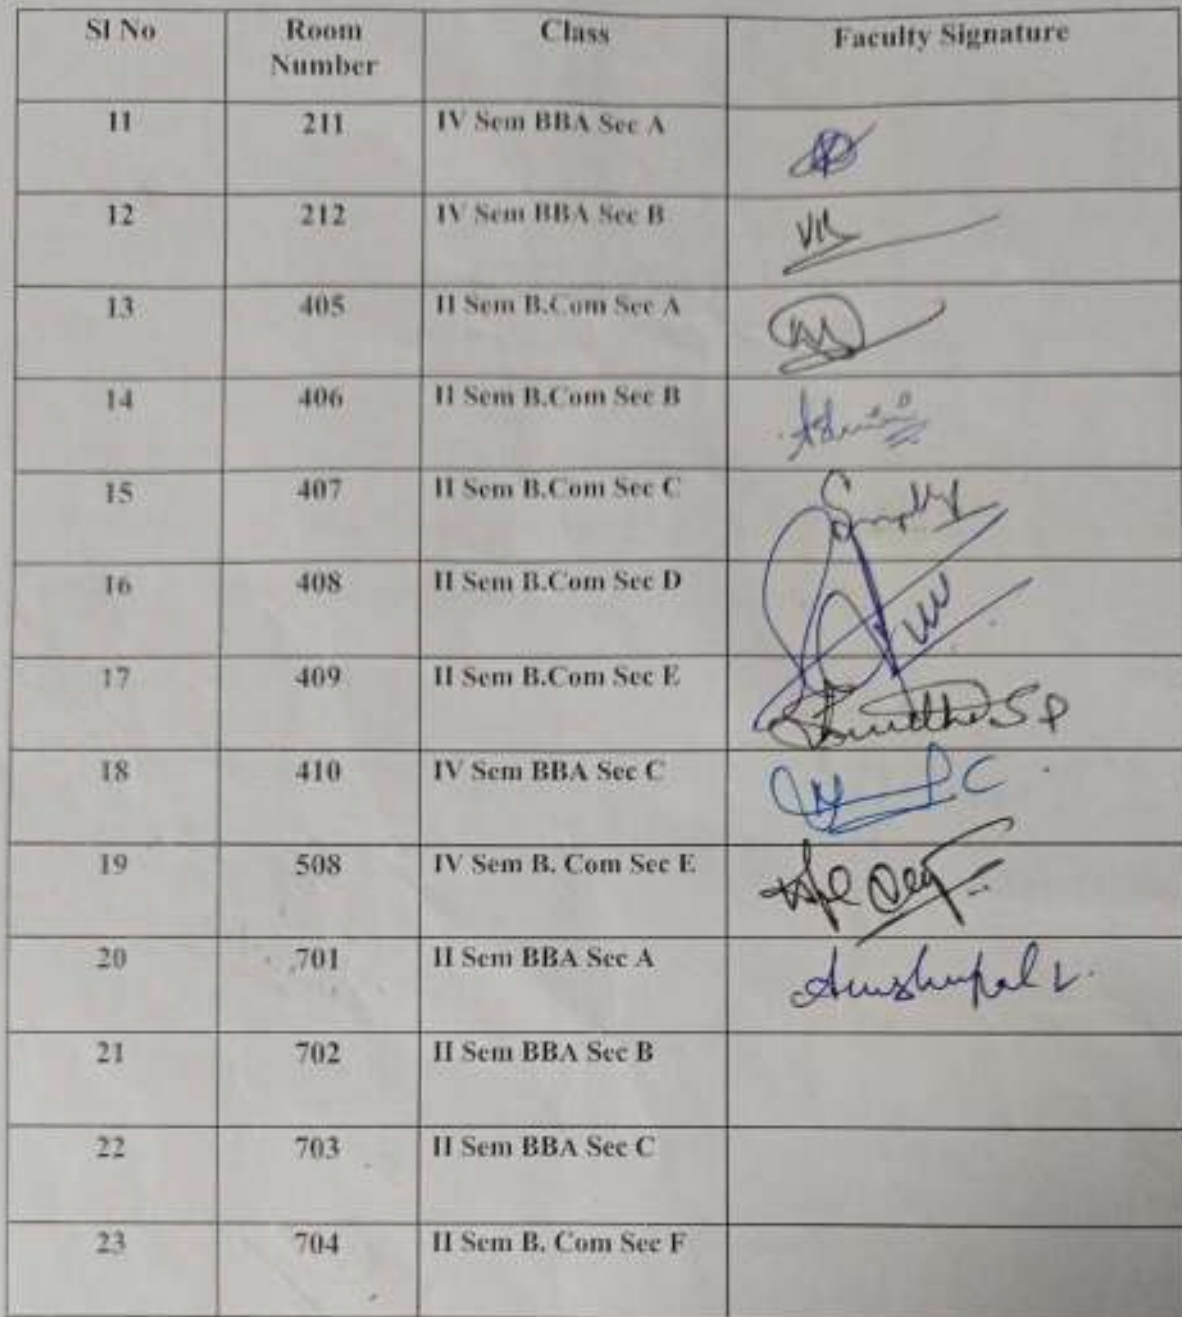 Sl No Room Number Class Faculty Signature
11 211 IV Sem BBA Sec A
12 212 IV Sem BBA Sec B
13 405 II Sem B.Com Sec A
14 406 II Sem B.Com Sec B
15 407 II Sem B.Com Sec C
16 408 II Sem B.Com Sec D
17 409 II Sem B.Com Sec E
18 410 IV Sem BBA Sec C
19 508 IV Sem B. Com Sec E
20 701 II Sem BBA Sec A
21 702 II Sem BBA Sec B
22 703 II Sem BBA Sec C
23 704 II Sem B. Com Sec F